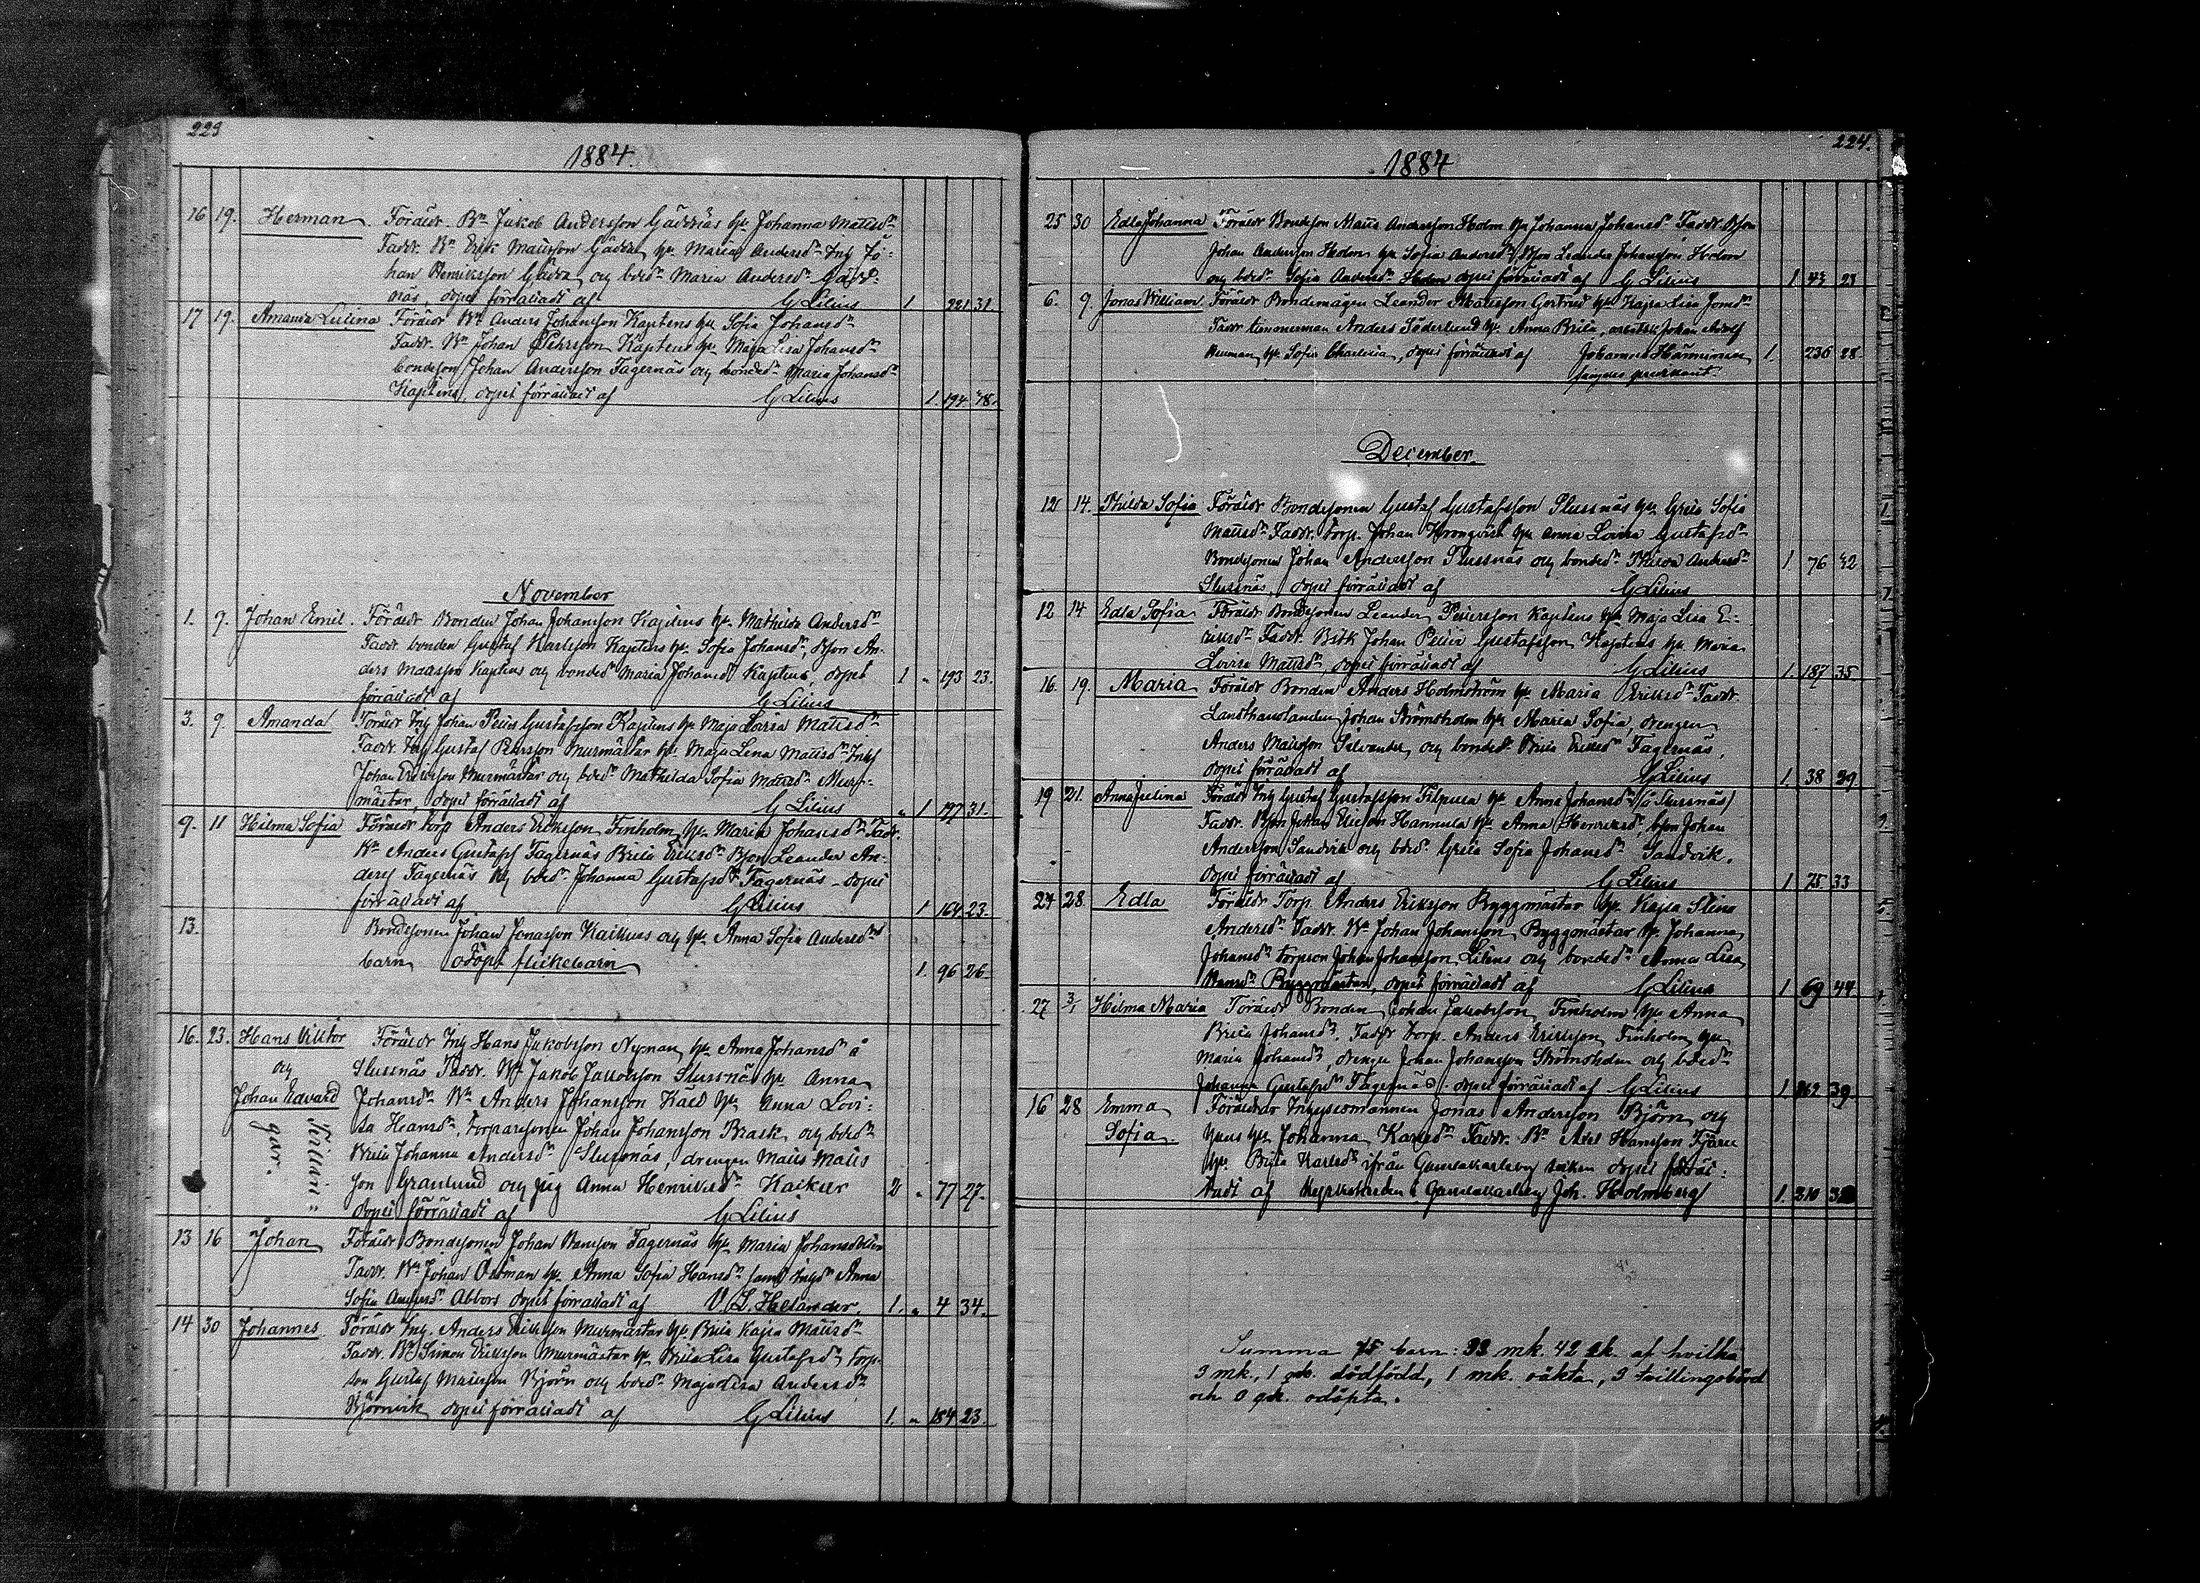 223
1884.
16 19. Herman. Föräldr. Bn Jakob Andersson Gäddnäs hu Johanna Mattsdr
Faddr. Bn Erik Mattsson Gädda, hu Maria Andersdr Ing Jo-
han Henriksson Gädda och bdedr Maria Andersdr Gädd-
näs, döpet förrättadt af G Lilius 1 221 31.
17 19. Amanda Lucina Föräldr Bn Anders Johansson Kaptens hu Sofia Johansdr
Faddr. Bn Johan Pehrsson Kaptens hu Maja Lisa Johansdr
bondeson Johan Andersson Fagernäs och bondedr Maria Johansdr
Kaptens, döpet förrättadt af G Lilius 1. 194
November
1. 9. Johan Emil. Föräldr Bonden Johan Johansson Kaptens hu Mathilda Andersdr
Faddr bonden Gustaf Karlsson Kaptens hu Sofia Johansdr, Bson An-
ders Mattsson Kaptens och bondedr Maria Johansdr Kaptens, döpet
förrättadt af G Lilius 1 " 193 23.
3. 9. Amanda Föräldr Ing Johan Petter Gustafsson Kaptens hu Maja Lovisa Mattsdr
Faddr Ing Gustaf Pehrsson Murmästar hu Maja Lena Mattsdr
Johan Eriksson Murmästar och bdedr Mathilda Sofia Mattsdr Mur-
mästar, döpet förrättadt af G Lilius " 1 197 31.
9. 11 Hilma Sofia Föräldr torp Anders Eriksson Finholm, hu Maria Johansdr Faddr.
Bn Anders Gustafs Fagernäs Brita Eriksdr Bson Leander An-
ders Fagernäs och bdedr Johanna Gustafsdr Fagernäs - döpet
förrättadt af G Lilius 1 164 23.
13. Bondesonen Johan Jonasson Kaikus och hu Anna Sofia Andersdrs
barn, odöpt flickebarn 1. 96 26
16. 23. Hans Viktor Föräldr Ing Hans Jakobsson Nyman, hu Anna Johansdr å
och Slussnäs Faddr. Bn Jakob Jakobsson Slussnäs hu Anna
Johan Edvard Johansdr Bn Anders Johansson hu Anna Lovi-
sa Hansdr, Torparesonen Johan Johansson Brask, och bdedr
Brita Johanna Andersdr Slussnäs, drengen Matts Matts
son Granlund och pig Anna Henriksdr 2 " 77 27.
döpet förrättadt af G Lilius
13 16 Johan Föräldr Bondesonen Johan Fagernäs hu Maria
Faddr. Bn Johan Östman hu Anna Sofia Hansdr samt Ingdr Anna
Sofia Andersdr Abbors döpet förrättadt af V. L. Helander. 1. " 4 34.
14 30 Johannes Föräldr Ing. Anders Eriksson Murmästar hu Brita Kajsa Mattsdr
Faddr. Bn Simon Eriksson Murmästar hu Brita Lisa Gustafsdr, torp-
son Gustaf Mattsson Björn och bdedr Maja Lisa Andersdr
Björnvik döpet förrättadt af G Lilius 1. " 184 23.
224.
1884
25 30 Edla Johanna Föräldr Bondeson Matts Andersson Holm hu Johanna Johansdr Faddr. Bson
Johan Andersson Holm hu Sofia Andersdr, Bson Leander Johansson Holm
och bdedr Sofia Andersdr Holm döpet förrättadt af G Lilius 1 43 23
6. 9. Jonas William Föräldr Bondemågen Leander Mattsson Gertrud hu Kajsa Lisa Jonsdr
Faddr timmerman Anders Söderlund hu Anna Brita, arbetsk Johan Adolf
hu Sofia Charlotta, döpet förrättadt af Johannes Hänninen 1. 236 28.
December.
12 14. Hilda Sofia Föräldr Bondesonen Gustaf Gustafsson Slussnäs hu Greta Sofia
Mattsdr Faddr. torp. Johan Kronqvist hu Anna Lovisa Gustafsdr
Bondesonen Johan Andersson Slussnäs och bondedr Hilda Andersdr 1 76 42
Slussnäs, döpet förrättadt af G Lilius
12 14 Edla Sofia Föräldr Bondesonen Leander Pettersson Kaptens hu Maja Lisa E-
riksdr Faddr. Johan Petter Gustafsson Kaptens hu Maria
Lovisa Mattsdr, döpet förrättadt af G Lilius 1 187 35
16. 19. Maria Föräldr Bonden Anders Holmström hu Maria Eriksdr Faddr.
Landthandlanden Johan Strömsholm hu Maria Sofia, drengen
Anders Mattsson Silvander, och bondedr Brita Eriksdr Fagernäs,
döpet förrättadt af G Lilius 1. 38 39
19 21. Anna Föräldr Ing Gustaf Gustafsson Filpus hu Anna Johansdr (å Slussnäs)
Faddr. Bson Johan Hannula hu Anna Henriksdr, bson Johan
Andersson Sandvik och bdedr Greta Sofia Johansdr Sandvik,
döpet förrättadt af G Lilius 1 75 33
24 28. Edla Föräldr Torp. Anders Eriksson Byggmästar hu Kajsa Stina
Andersdr Faddr Bn Johan Johansson, Byggmästar hu Johanna
Johansdr torpson Johan Johansson och bondedr Lisa
Byggmästar, döpet förrättadt af G Lilius 1 69 44.
27 3/1 Hilma Maria Föräldr Bonden Johan Jakobsson Finholm hu Anna
Brita Johansdr. Faddr torp. Anders Eriksson, Finholm hu
Maria Johansdr, drengen Johan Johansson Strömsholm och bdedr
Johanna Gustafsdr Fagernäs. döpet förrättadt af G Lilius 1 162 39.
16 28 Emma Föräldrar Inhysesmannen Jonas Andersson Björn och
Sofia hans hu Johanna Karlsdr Faddr. Bn Axel Hansson
hu Brita Karlsdr ifrån Gamlakarleby socken döpet förrät-
tadt af Kyrkoherden i Gamlakarleby Joh. Holmberg 1. 210
Summa 75 barn: 33 mk. 42 qk. af hvilka
3 mk., 1 qk. dödfödd, 1 mk. oäkta, 3 tvillingsbörd
och 0 qk. odöpta.